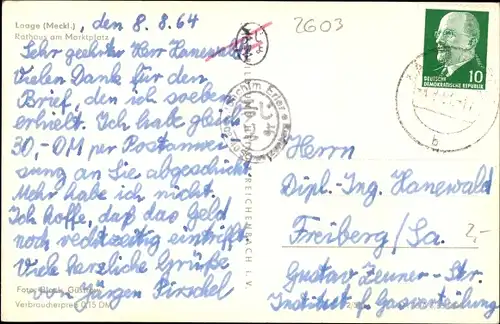 Laage (Meckl.)
Rathaus am Marktplatz
, den 8. 8. 64
Sehr geehrter Herr Hanewald
Vielen Dank für den
Brief, den ich soeben
erhielt. Ich habe gleich
30,-DM per Postanwei-
sung an Sie abgeschickt
Mehr habe ich nicht.
Ich hoffe, daß das Geld
noch rechtzeitig eintrifft
Viele herzliche Grüße
von Jürgen Pirschel
Foto
Verbraucherpreis 0,15 DM
REICHENBACH I. V.
2603
10
DEUTSCHE
DEMOKRATISCHE REPUBLIK
b
Herrn
Dipl.-Ing. Hanewald
Freiberg/Sa.
2,-
Gustav Zeuner-Str.
Institut f. Gasverteilung